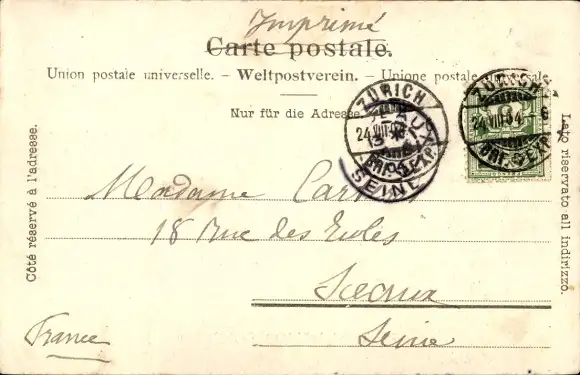 Imprimé
Carte postale.
Union postale universelle. – Weltpostverein. – Unione postale universale.
Nur für die Adresse.
ZÜRICH
24.VIII.04
BRF. EXP.
SEINE
ZÜRICH
24.VIII.04
BRF. EXP.
Côté réservé à l'adresse.
Lato riservato all indirizzo.
Madame
18 Rue des Ecoles
Sceaux
Seine
France